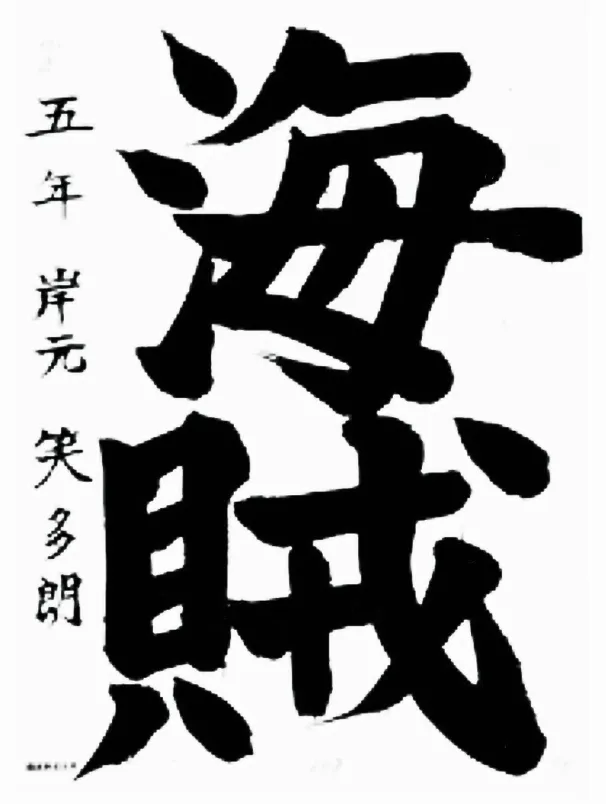 海賊
五年 岸元 笑多朗